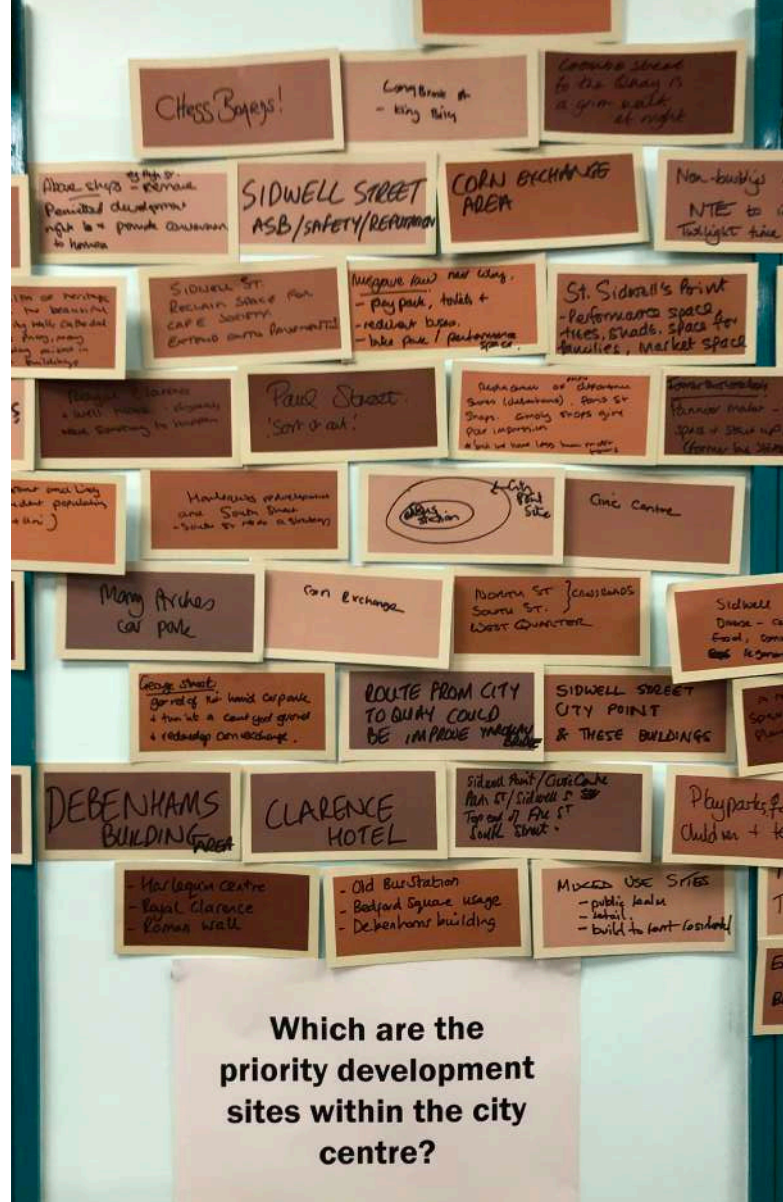 CHESS BOARDS!
Longbrook St
- King Billy
to the Quay is
a grim walk
at night
Above shops - remove
Permitted development
right to & provide conversion
to homes
SIDWELL STREET
ASB/SAFETY/REPUTATION
CORN EXCHANGE
AREA
Non-buildings
NTE to
Twilight time
of heritage
the beautiful
SIDWELL ST.
RECLAIM SPACE FOR
CAFE SOCIETY
EXTEND ONTO PAVEMENT!
- play park, toilets +
- redirect buses.
- performance
space.
St. Sidwell's Point
- Performance space,
trees, shade, space for
families, market space
+ Well House -
need something to happen
Paul Street.
'Sort it out!'
department
Stores (debenhams). Fore St
Shops. Empty shops give
poor impression
Farmer market
space + start up
(former bus station
student population
+ uni)
Harlequins redevelopment
and South Street
- South St needs a strategy
Bus
Station
City
Point
Site
Civic Centre
Mary Arches
car park
Corn Exchange
NORTH ST
SOUTH ST.
CROSSROADS
WEST QUARTER
Sidwell
Food,
George street
get rid of
car park
+ turn into a court yard
+ redevelop corn exchange.
ROUTE FROM CITY
TO QUAY COULD
BE IMPROVE
BRIDGE
SIDWELL STREET
CITY POINT
& THESE BUILDINGS
DEBENHAMS
BUILDING AREA
CLARENCE
HOTEL
Sidwell Point/Civic Centre
Paris ST/Sidwell S
Top end of Fore ST
South Street.
Play parks,
Children +
- Harlequin Centre
- Royal Clarence
- Roman Wall
- Old Bus Station
- Bedford Square usage
- Debenhams building
MIXED USE SITES
- public realm
- retail.
- build to rent residential
Which are the
priority development
sites within the city
centre?